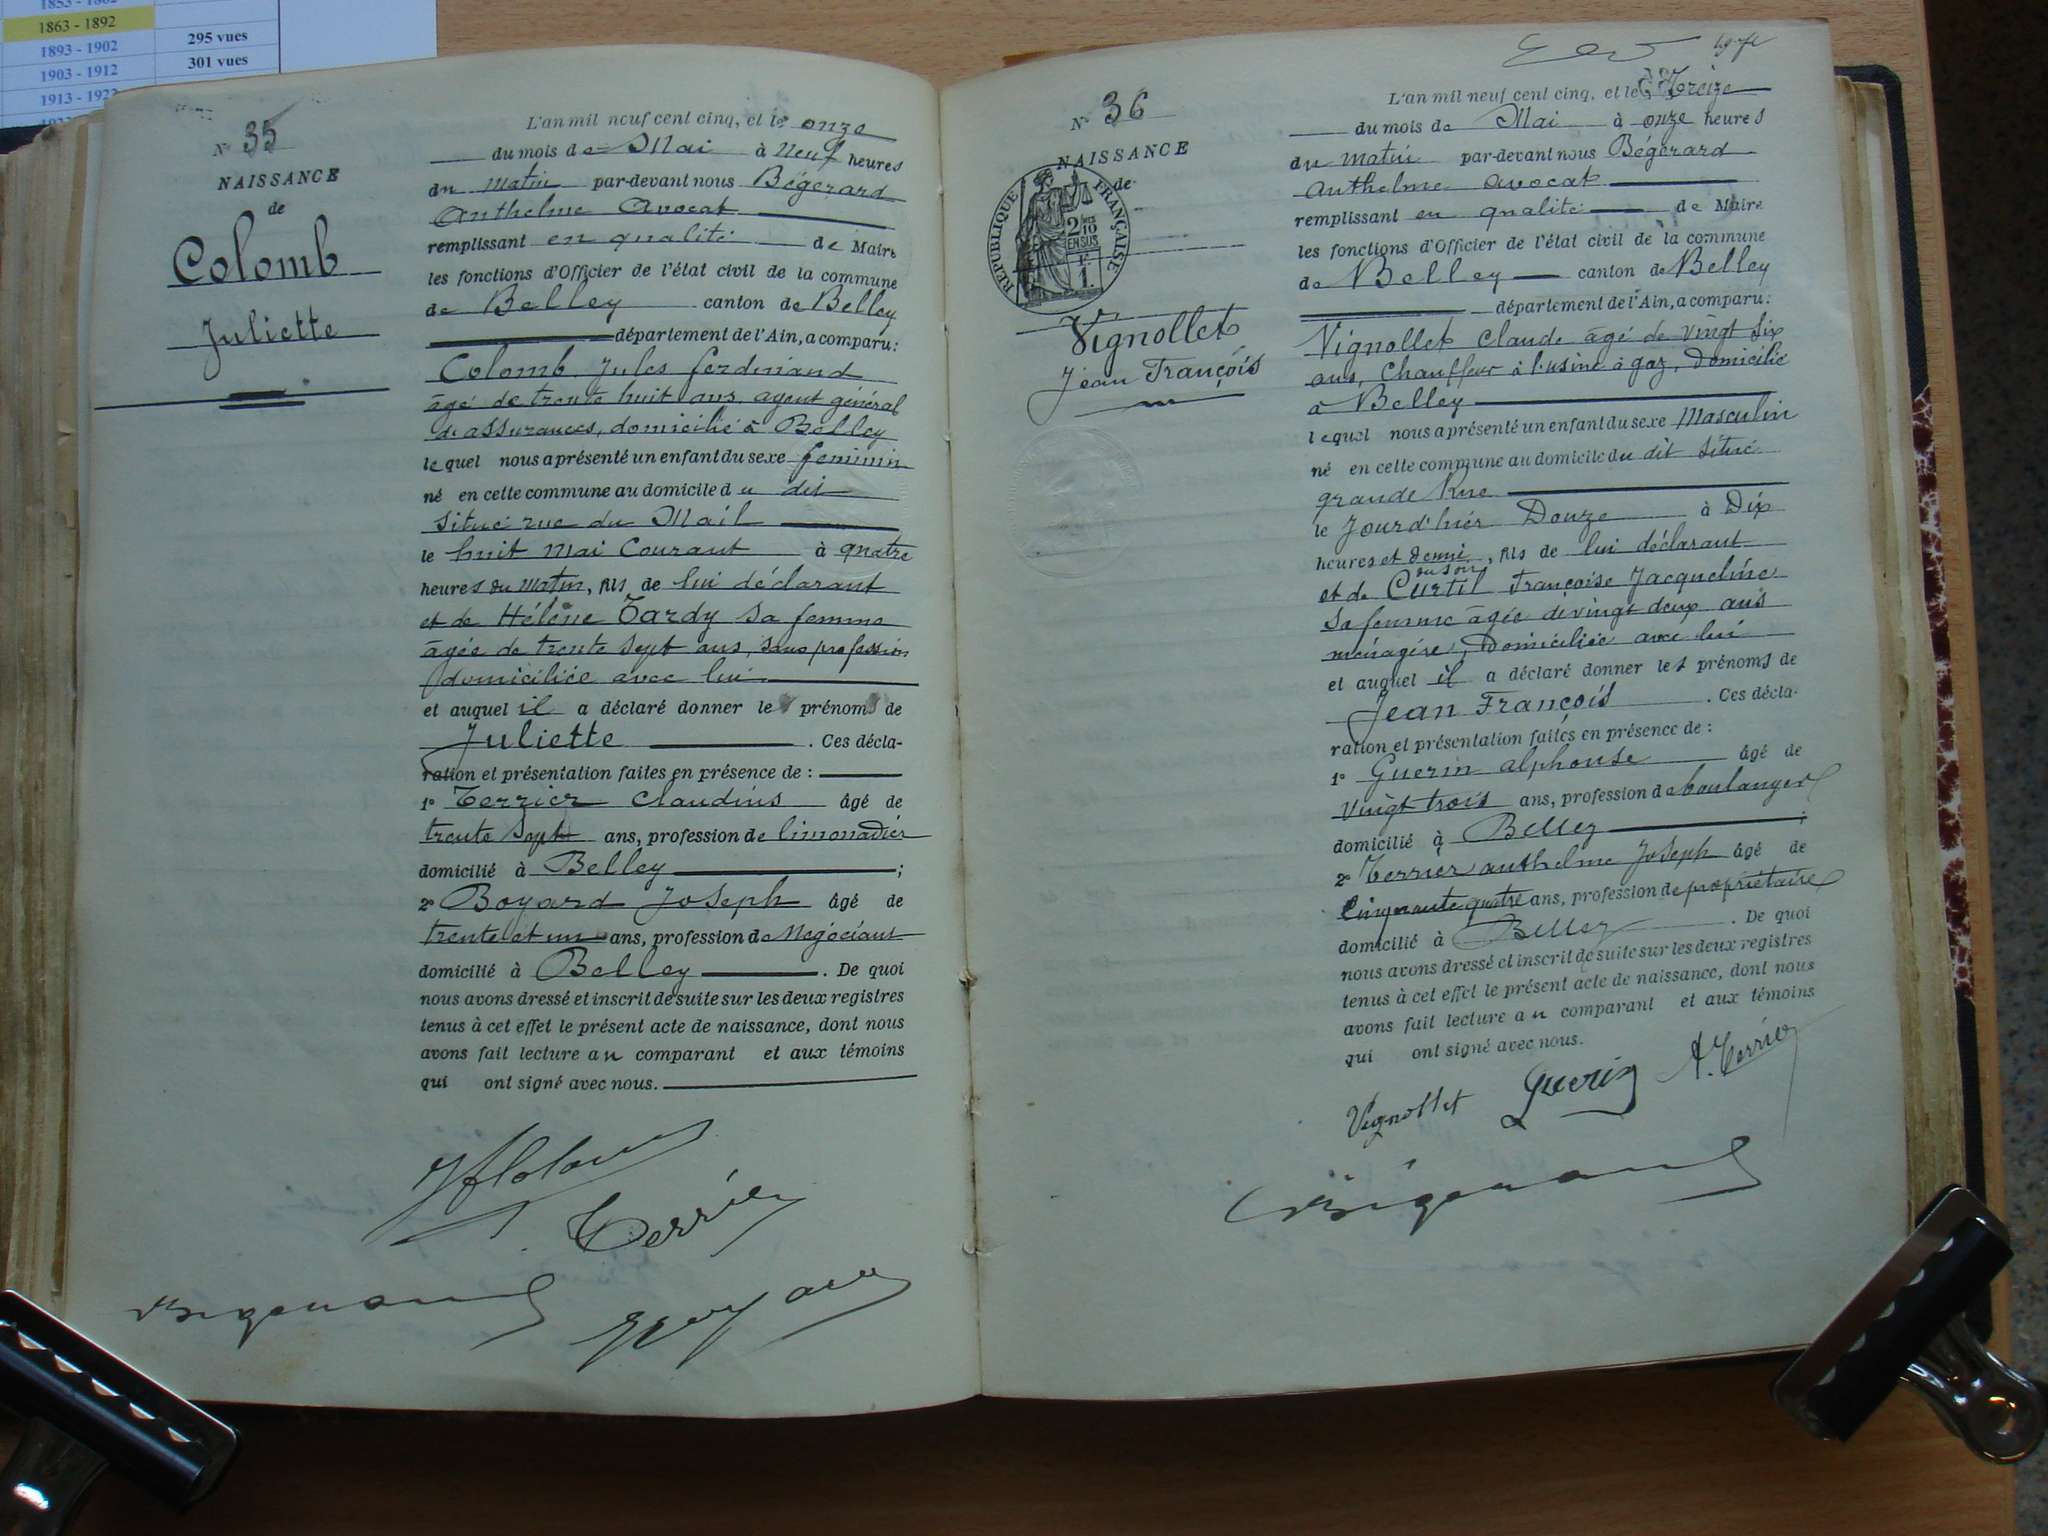 1863 - 1892
1893 - 1902
295 vues
1903 - 1912
301 vues
1913 - 1922
N° 35
NAISSANCE
de
Colomb
Juliette
L'an mil neuf cent cinq, et le onze
du mois de Mai à Neuf heures
du matin par-devant nous Bégerard
Anthelme Avocat
remplissant en qualité de Maire
les fonctions d'Officier de l'état civil de la commune
de Belley canton de Belley
département de l'Ain, a comparu:
Colomb Jules ferdinand
âgé de trente huit ans, agent général
d'assurances, domicilié à Belley
lequel nous a présenté un enfant du sexe féminin
né en cette commune au domicile du dit
situé rue du Mail
le huit Mai Courant à quatre
heures du matin, fils de lui déclarant
et de Hélène Tardy sa femme
âgée de trente sept ans, sans profession
domiciliée avec lui
et auquel il a déclaré donner le prénom de
Juliette . Ces décla-
ration et présentation faites en présence de :
1° Terrier Claudius âgé de
trente sept ans, profession de limonadier
domicilié à Belley ;
2° Boyard Joseph âgé de
trente et un ans, profession de Négociant
domicilié à Belley . De quoi
nous avons dressé et inscrit de suite sur les deux registres
tenus à cet effet le présent acte de naissance, dont nous
avons fait lecture au comparant et aux témoins
qui ont signé avec nous.
Terrier
N° 36
NAISSANCE
de
RÉPUBLIQUE FRANÇAISE
2/10
EN SUS
1.
Vignollet
Jean François
L'an mil neuf cent cinq, et le Treize
du mois de Mai à onze heures
du matin par-devant nous Bégerard
Anthelme avocat
remplissant en qualité de Maire
les fonctions d'Officier de l'état civil de la commune
de Belley canton de Belley
département de l'Ain, a comparu:
Vignollet Claude âgé de vingt six
ans, Chauffeur à l'usine à gaz, Domicilié
à Belley
lequel nous a présenté un enfant du sexe Masculin
né en cette commune au domicile du dit situé
grande Rue
le Jourd'hier Douze à Dix
heures et demi, fils de lui déclarant
du soir
et de Curtil Françoise Jacqueline
sa femme âgée de vingt deux ans
ménagère, Domiciliée avec lui
et auquel il a déclaré donner les prénoms de
Jean François . Ces décla-
ration et présentation faites en présence de :
1° Guerin alphonse âgé de
Vingt trois ans, profession de boulanger
domicilié à Belley ;
2° Terrier anthelme Joseph âgé de
Cinquante quatre ans, profession de propriétaire
domicilié à Belley . De quoi
nous avons dressé et inscrit de suite sur les deux registres
tenus à cet effet le présent acte de naissance, dont nous
avons fait lecture au comparant et aux témoins
qui ont signé avec nous.
Vignollet Guerin A. Terrier